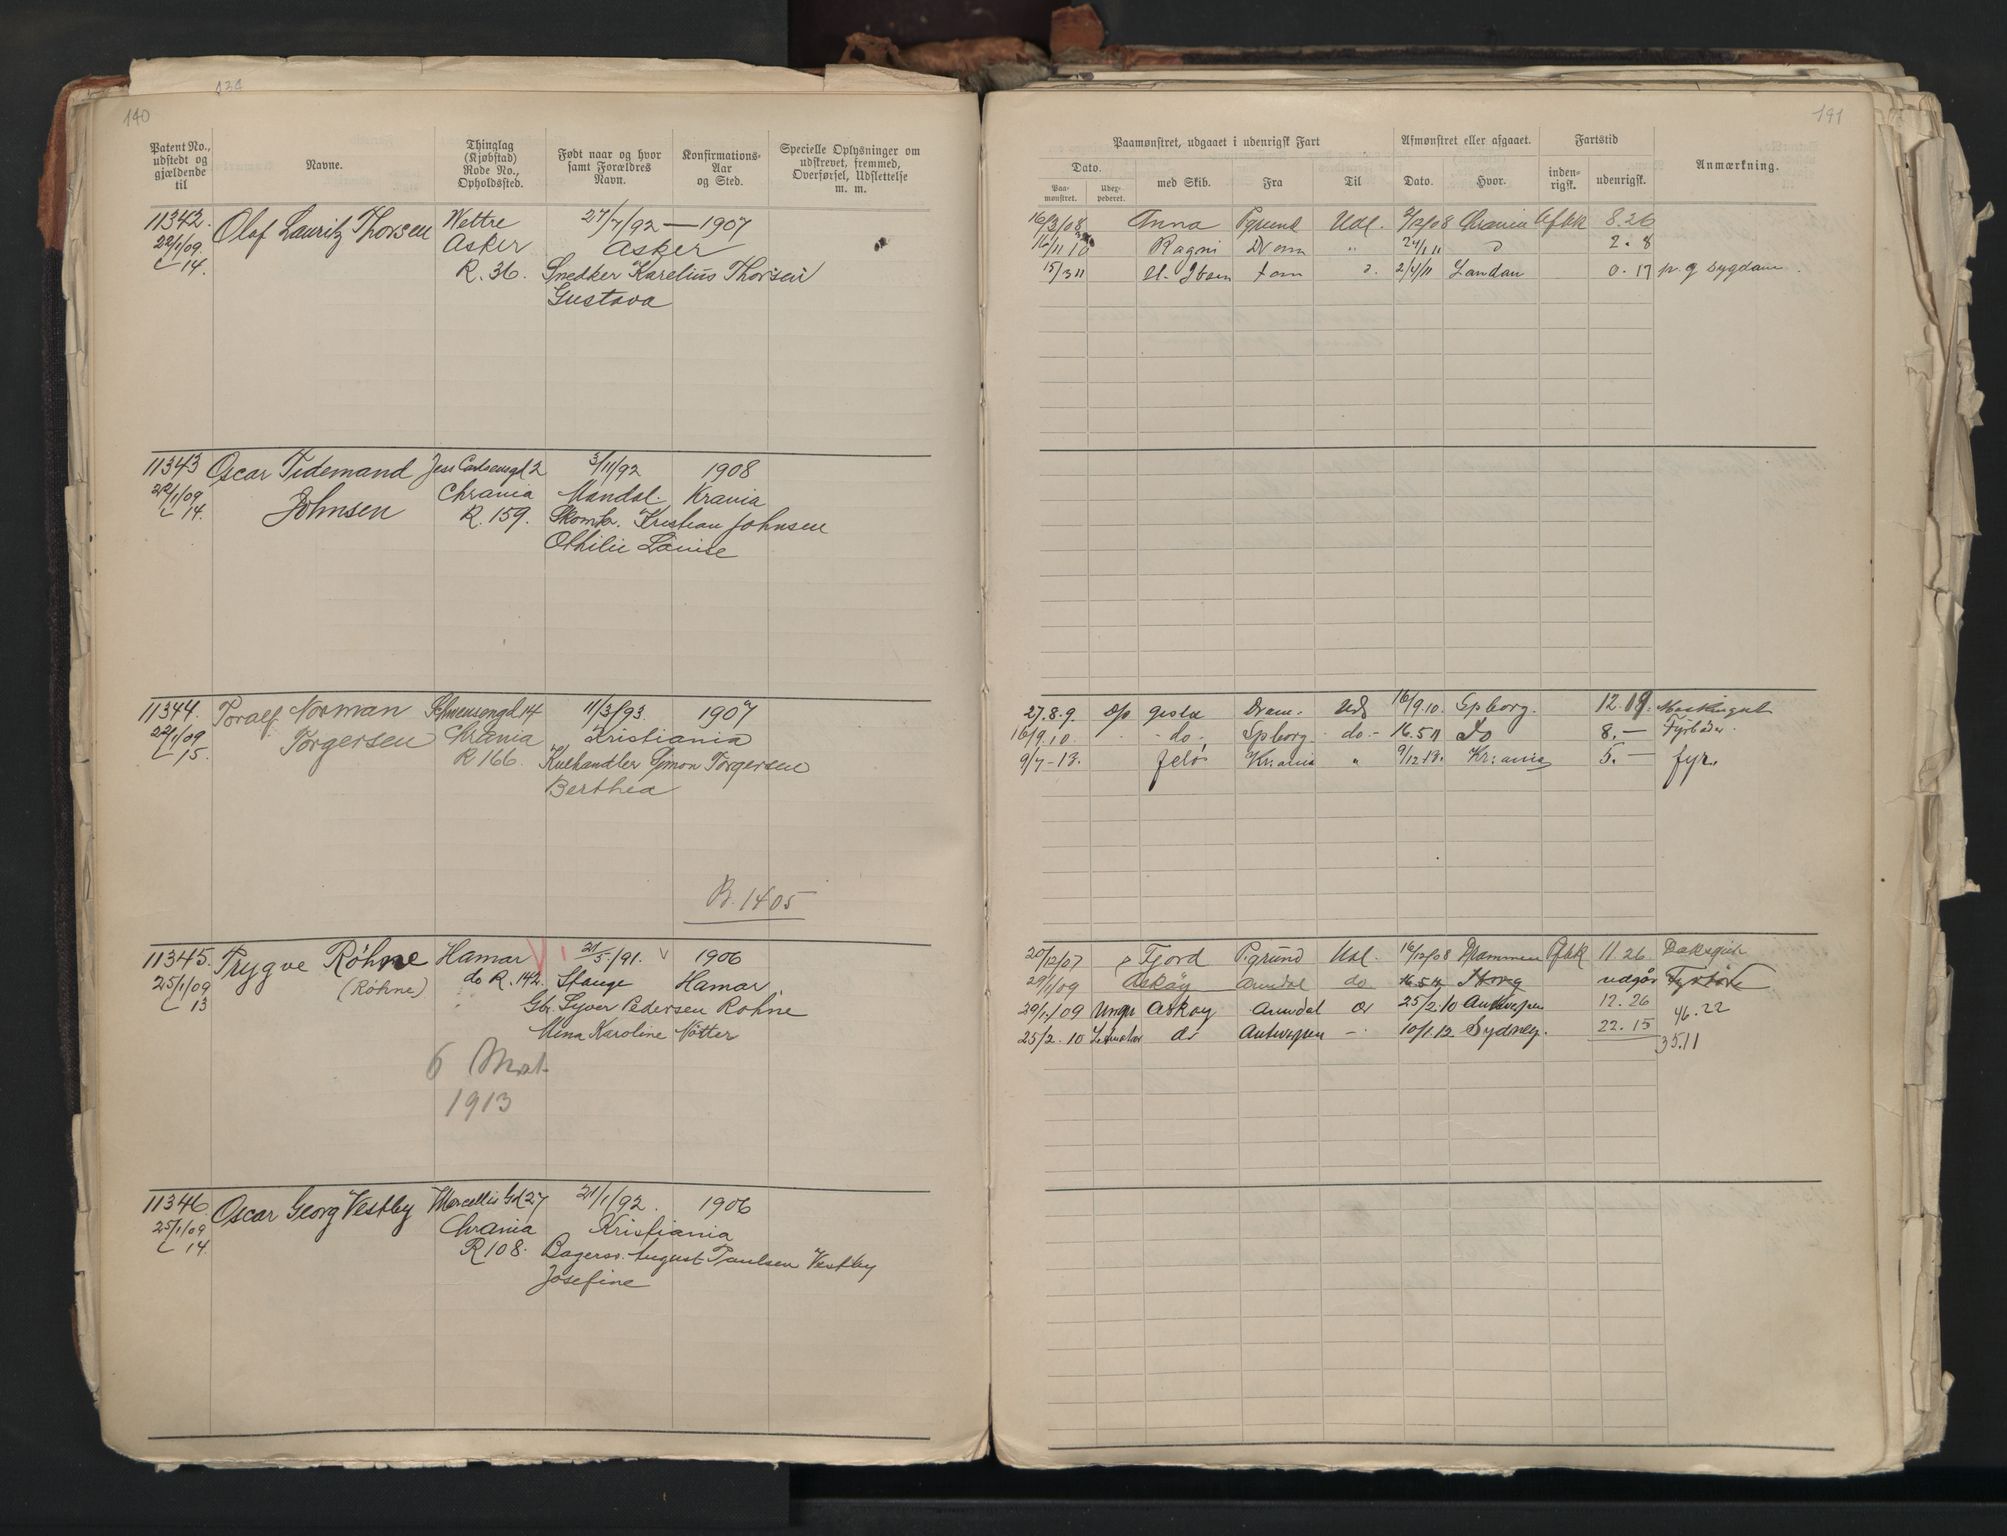 140
Patent No., udstedt og gjældende til
Navne.
Thinglag (Kjøbstad) Rode No., Opholdssted.
Født naar og hvor samt Forældres Navn.
Konfirmations-Aar og Sted.
Specielle Oplysninger om udskrevet, fremmed, Overførsel, Udslettelse m. m.
11342. Olaf Lauritz Thorsen Wettre 27/7/92 — 1907
22/1/09 Asker Asker
L 14. R. 36. Snedker Karelius Thorsen
Gustava
11343 Oscar Tidemand Jess Carlsensgd 2 3/11/92 1908
22/1/09 Johnsen Chrania Mandal. Krania
L 14. R. 159. Skomkr. Kristian Johnsen
Othilie Louise
11344. Toralf Norman Schwensengd 14 11/3/93. 1907
22/1/09 Torgersen Chrania Kristiania
L 15. R 166. Kulhandler Simon Torgersen
Berthea
B. 1405
11345. Trygve Röhne Hamar 21/5/91. 1906
25/1/09 (Røhne) do R. 142. Stange Hamar
L 13 Gbr. Syver Pedersen Rohne
Mina Karoline Nötter
6 Mat.
1913
11346. Oscar Georg Vestby Marcellis Gd 27 21/1/92. 1906
25/1/09 Chrania Kristiania
L 14. R 108. Bagersv. August Paulsen Vestby
Josefine
141
Paamønstret, udgaaet i udenrigsk Fart
Afmønstret eller afgaaet.
Fartstid
Anmærkning.
Dato.
Paa-mønstret.
Udex-pederet.
med Skib.
Fra
Til
Dato.
Hvor.
inden-rigsk.
udenrigsk.
16/3/08 Anna Pgrund Udl. /12/08 Chrania Afbk 8.26
16/11 10 Ragni Dram " 24/1 11 " 2. 8
15/3 11 2/4/11 Landau 0. 17 p. g sygdam
27.8.9. Dram. Uds 16/9.10. Spborg. 12. 19.
16/9.10. - do. Spborg - do - 16.5 11 Do 8. — Fyrbøder.
9/7-13. Jelö Kr:ania " 9/12 13. Kr:ania 5. — fyr.
20/12/07 Fjord Pgrund Udl. 16/12/08 Drammen Afbk 11.26 Dæksgut
29/1/09 Askøy Arendal do 16.5 11 udgår Fyrbøder
29/1/09 Ungm Askøy Arendal 25/2.10 Antwerpen 12.26 46.22
25/2.10 do Antwerpen — 10/1.12 Sydney. 22.15
35.11